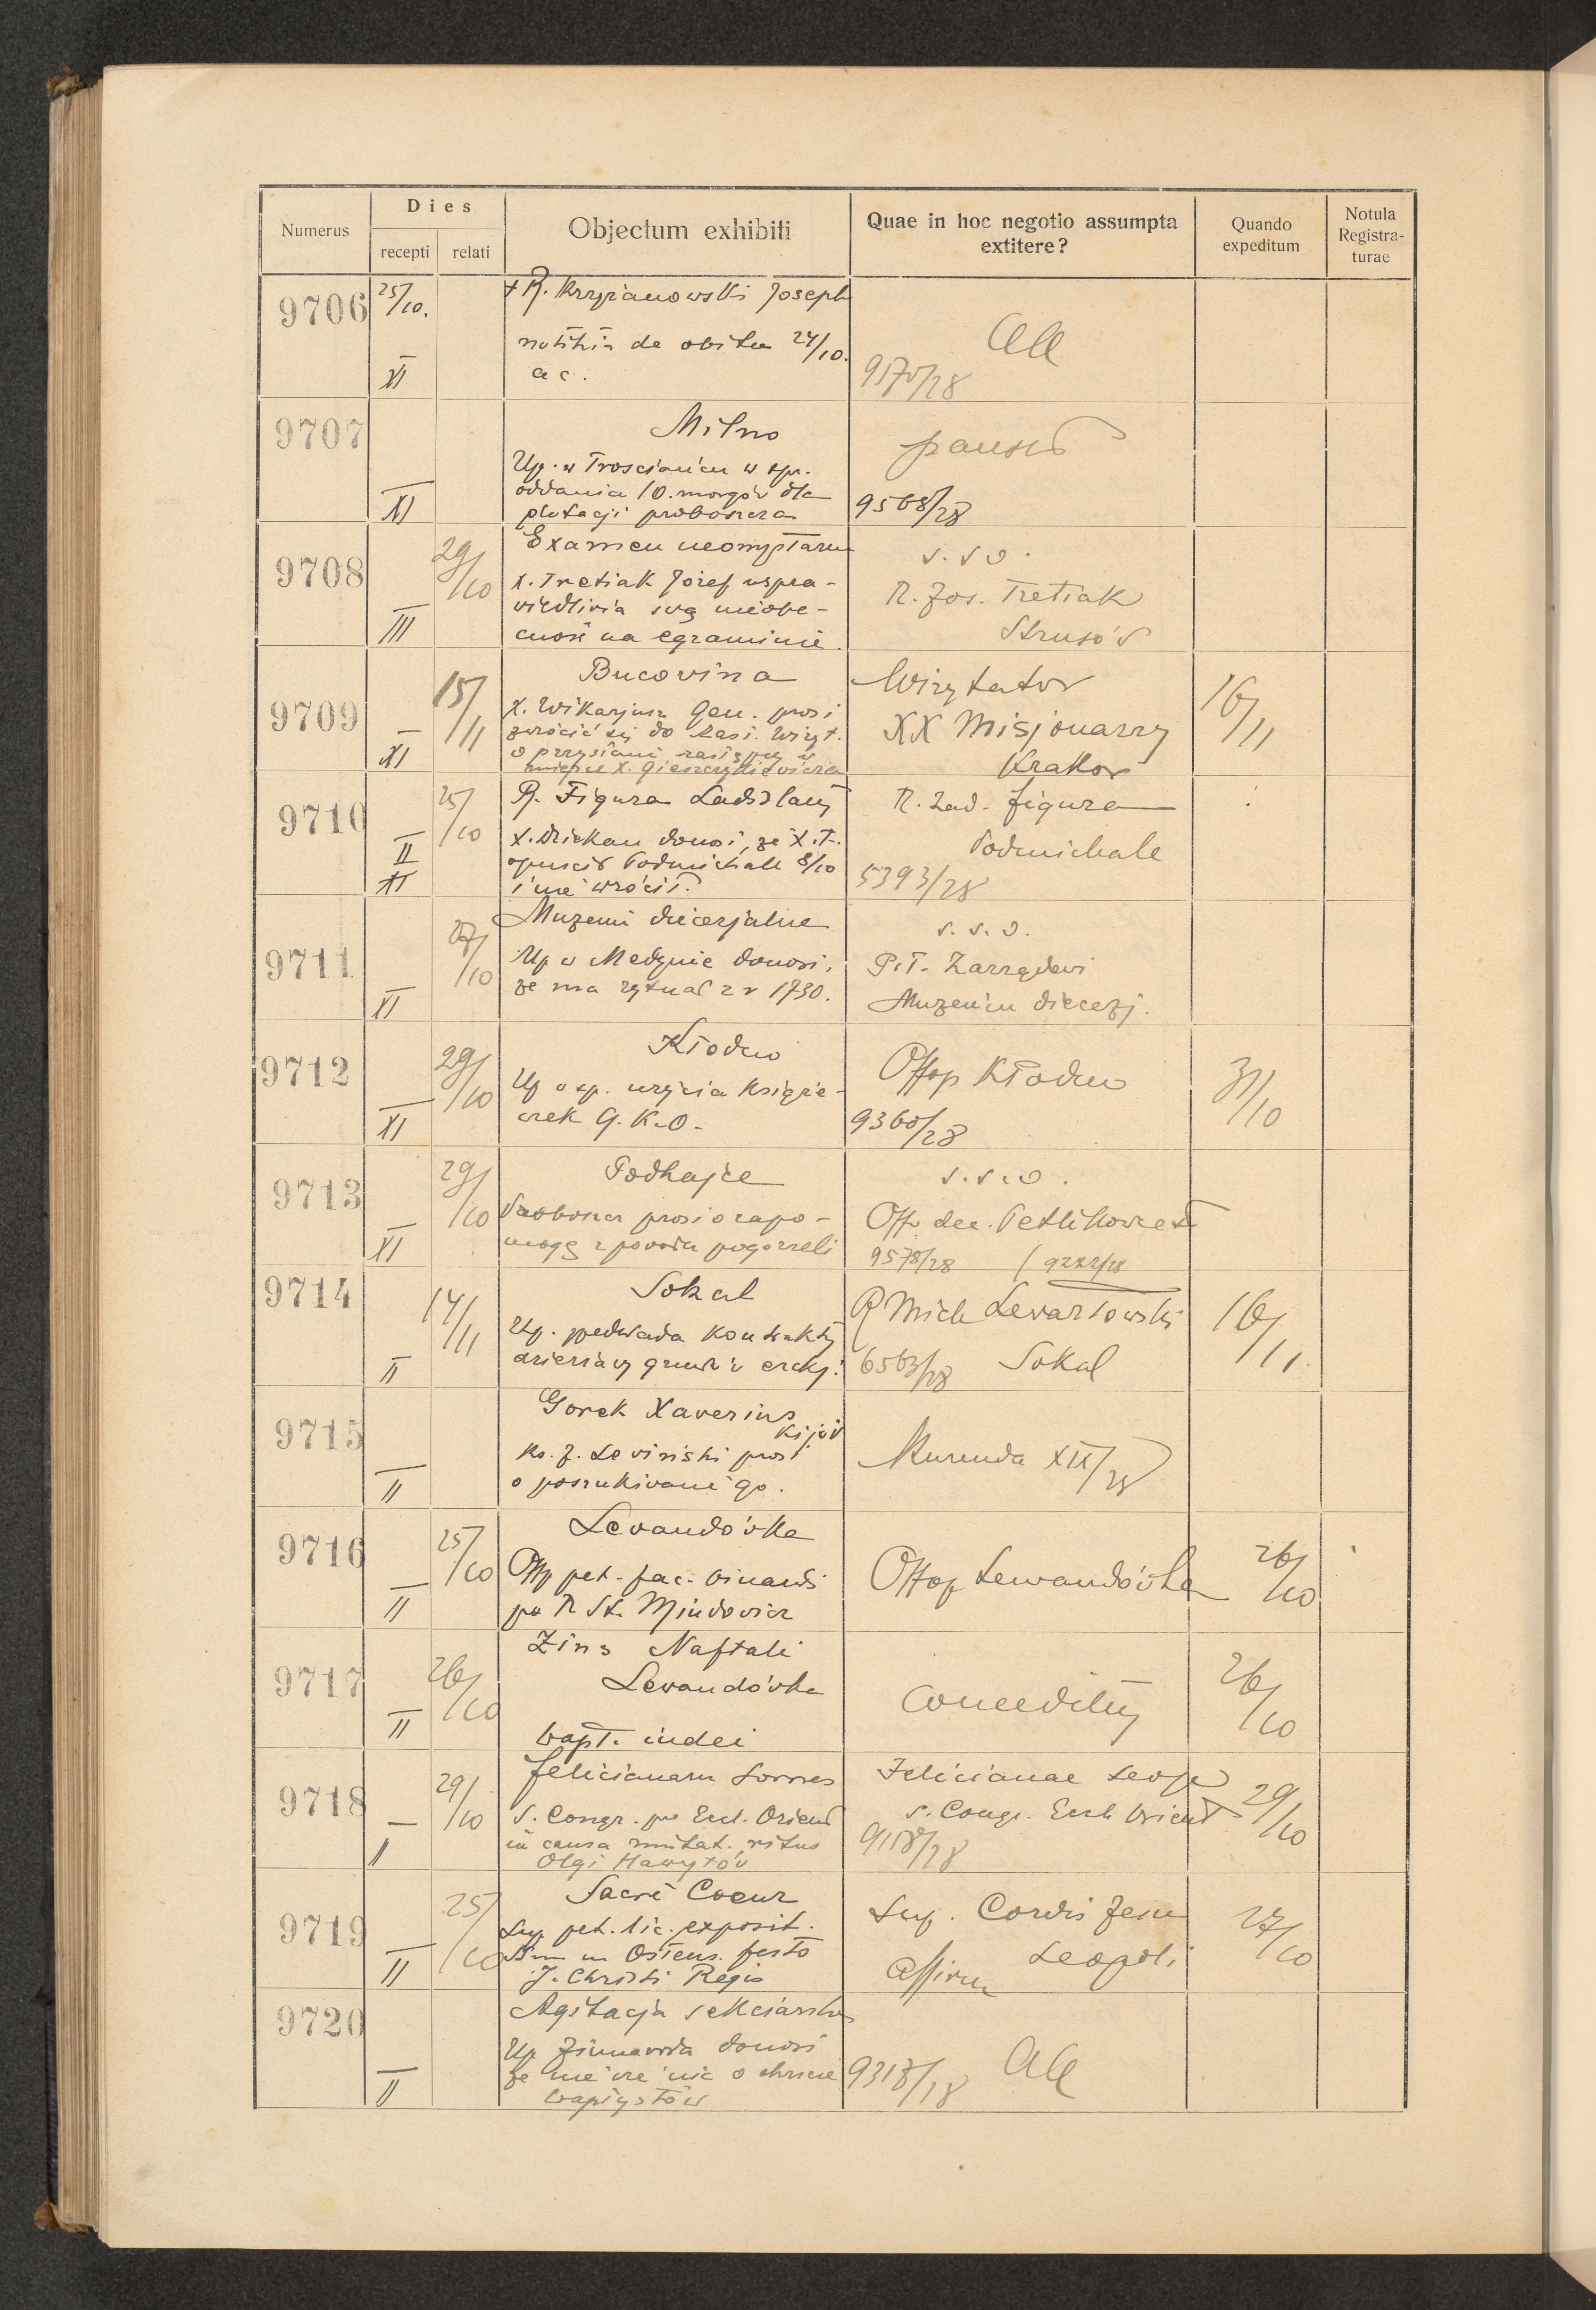 Numerus
Dies
recepti relati
Objectum exhibiti
Quae in hoc negotio assumpta
extitere?
Quando
expeditum
Notula
Registra-
turae
9706
25/10.
XI
+ R. Krzyżanowski Joseph
notitia de obitu 24/10.
a c.
9570/28
9707
XI
Milno
Up. w Trościańcu w spr.
oddania 10 morgów dla
dotacji proboszcza
9568/28
9708
29/10
III
Examen
X. Tretiak Józef uspra-
wiedliwia swą nieobe-
cność na egzaminie.
s. s. o.
R. Jos. Tretiak
Strusów
9709
15/11
XI
Bucovina
X. Wikarjusz Gen. prosi
zwrócić się do
o przysłanie
miejsce X.
Wizytator
XX Misjonarzy
Kraków
16/11
9710
25/10
II
XI
R. Figura Ladislaus
X. Dziekan donosi, że X. F.
opuścił Podmichale 8/10
i nie wrócił.
R. Lad. Figura
Podmichale
5393/28
9711
27/10
XI
Muzeum diecezjalne
Up w Medynie donosi,
że ma rytuał z r 1730.
s. s. o.
P. T. Zarządowi
Muzeum diecezj.
9712
29/10
XI
Kłodno
Up w sp. użycia książe-
czek G. K. O.
Offop Kłodno
9360/28
31/10
9713
29/10
XI
Podhajce
Proboszcz prosi o zapo-
mogę z powodu pogorzeli
s. s. o.
Off. dec. Petlikowce
9578/28
9714
14/11
II
Sokal
Up. przedkłada kontrakty
dzierżawy
R Mich Lewartowski
6563/28 Sokal
16/11.
9715
II
Gorek Xaverius
Kijów
Ks. J. Lewiński prosi
o poszukiwanie go.
Kurenda XIX/28
9716
25/10
II
Lewandówka
Offop pet. fac. binandi
po R St. Mindowicz
Offop Lewandówka
26/10
9717
26/10
II
Zins Naftali
Lewandówka
bapt. iudei
Conceditur
26/10
9718
29/10
II
Felicianarum Sorores
S. Congr. pro Eccl. Orient
in causa mutat. ritus
Olgi Hawryłów
Felicianae Leop
S. Congr. Eccl Orient
9118/28
29/10
9719
25/10
II
Sacré Coeur
Sup. pet. lic. exposit.
festo
J. Christi Regis
Sup. Cordis Jesu
Leopoli
Affirm
27/10
9720
II
Agitacja sekciarska
Up Zimnawoda donosi
że nie wie nic o chrzcie
baptystów
9317/28